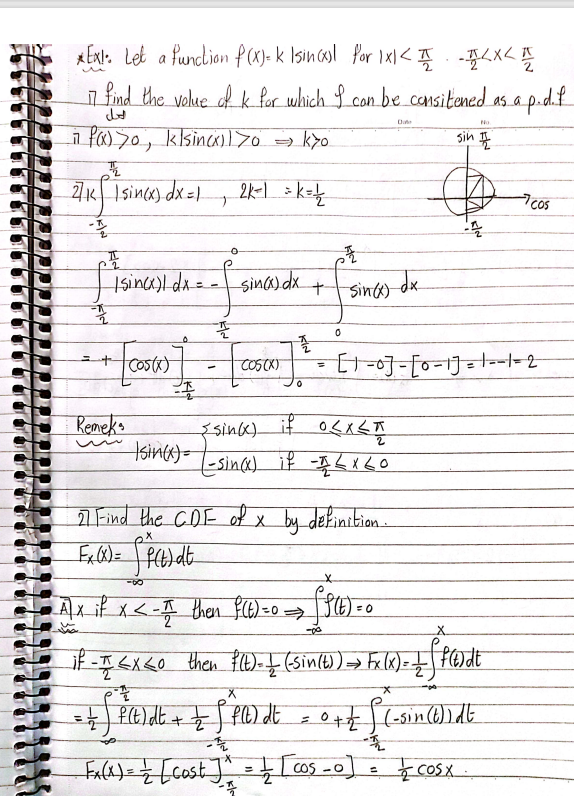 *Ex1: Let a function f(x)= k |sin(x)| for |x|< π/2 . -π/2<x<π/2
1] find the value of k for which f can be consitened as a p.d.f
Date No
1] f(x)>0, k|sin(x)|>0 ⇒ k>0
sin π/2
cos
-π/2
2] k∫_{-π/2}^{π/2} |sin(x) dx =1 , 2k=1 = k=1/2
∫_{-π/2}^{π/2} |sin(x)| dx = - ∫_{π/2}^{0} sin(x) dx + ∫_{0}^{π/2} sin(x) dx
= + [cos(x)]_{-π/2}^{0} - [cos(x)]_{0}^{π/2} = [1-0]-[0-1] = 1--1= 2
Remeks
|sin(x)= { sin(x) if 0<x<π/2
-sin(x) if -π/2<x<0
2] Find the CDF of x by definition.
Fx(x)= ∫_{-∞}^{x} f(t) dt
A] x if x<-π/2 then f(t)=0 ⇒ ∫_{-∞}^{x} f(t)=0
if -π/2<x<0 then f(t)=1/2 (-sin(t)) ⇒ Fx(x)=1/2 ∫_{-∞}^{x} f(t)dt
=1/2 ∫_{∞}^{-π/2} f(t)dt + 1/2 ∫_{-π/2}^{x} f(t) dt = 0+1/2 ∫_{-π/2}^{x} (-sin(t)) dt
Fx(x)=1/2 [cost]_{-π/2}^{x} = 1/2 [cos -0] = 1/2 cosx.